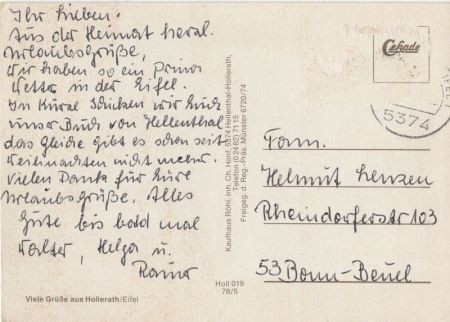 Ihr Lieben.
Aus der Heimat herzl.
Urlaubsgrüße,
wir haben so ein prima
Wetter in der Eifel.
In Kürze schicken wir Euch
unser Buch von Hellenthal
das Gleiche gibt es schon seit
Weihnachten nicht mehr.
Vielen Dank für Eure
Urlaubsgrüße. Alles
Gute bis bald mal
Walter, Helga u.
Rainer
Viele Grüße aus Hollerath/Eifel
Kaufhaus Röhl, Inh. Ch. Hanf, 5374 Hellenthal-Hollerath,
Telefon (02482) 71 15
Freigeg. d. Reg.-Präs. Münster 6720/74
Holl 019
78/5
Cekade
5374
Fam.
Helmut Lenzen
Rheindorferstr 103
53 Bonn-Beuel